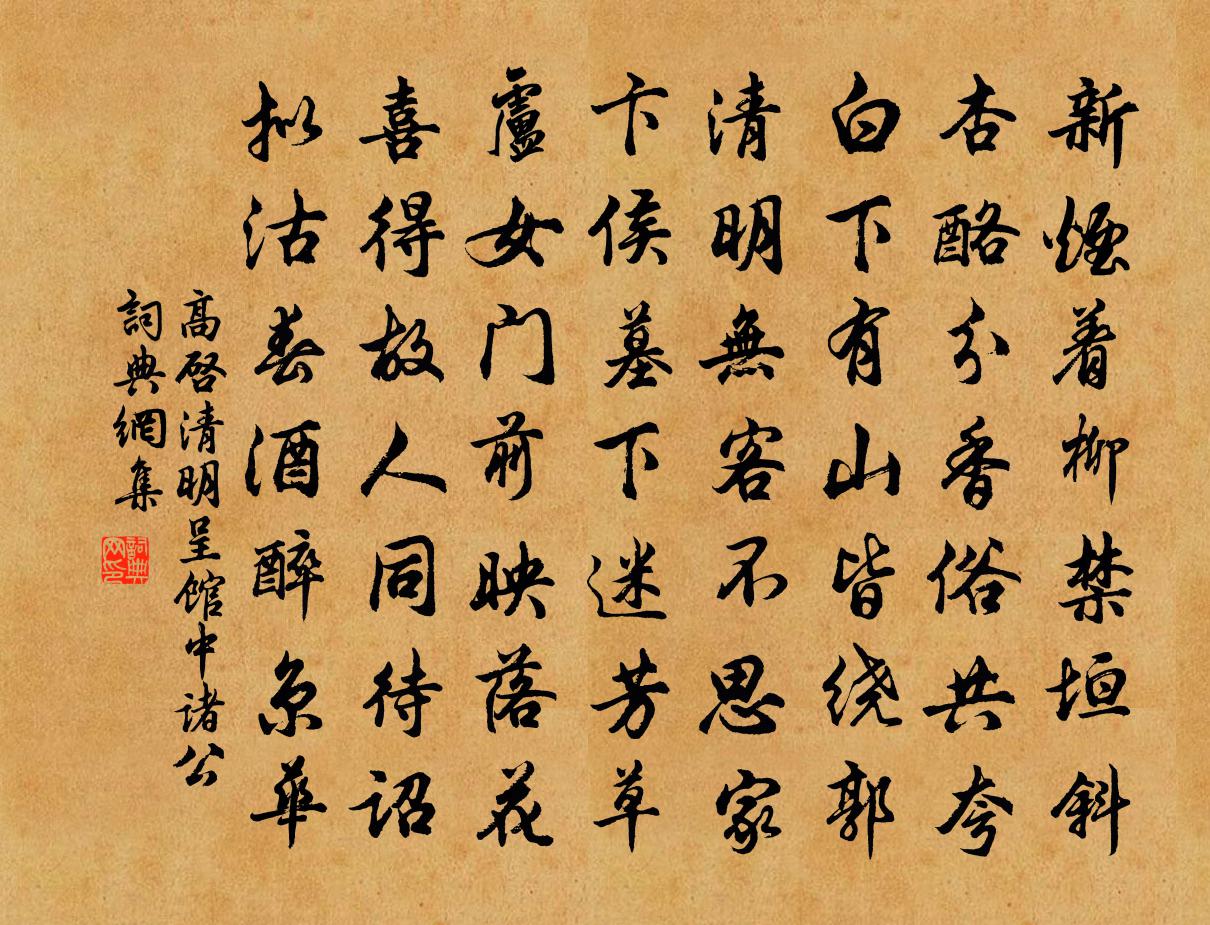 新煙着柳禁垣斜
杏酪分香俗共夸
白下有山皆绕郭
清明無客不思家
卞侯墓下迷芳草
盧女门前映落花
喜得故人同待诏
拟沽春酒醉京華
高啓清明呈馆中诸公
詞典網集
詞典网印